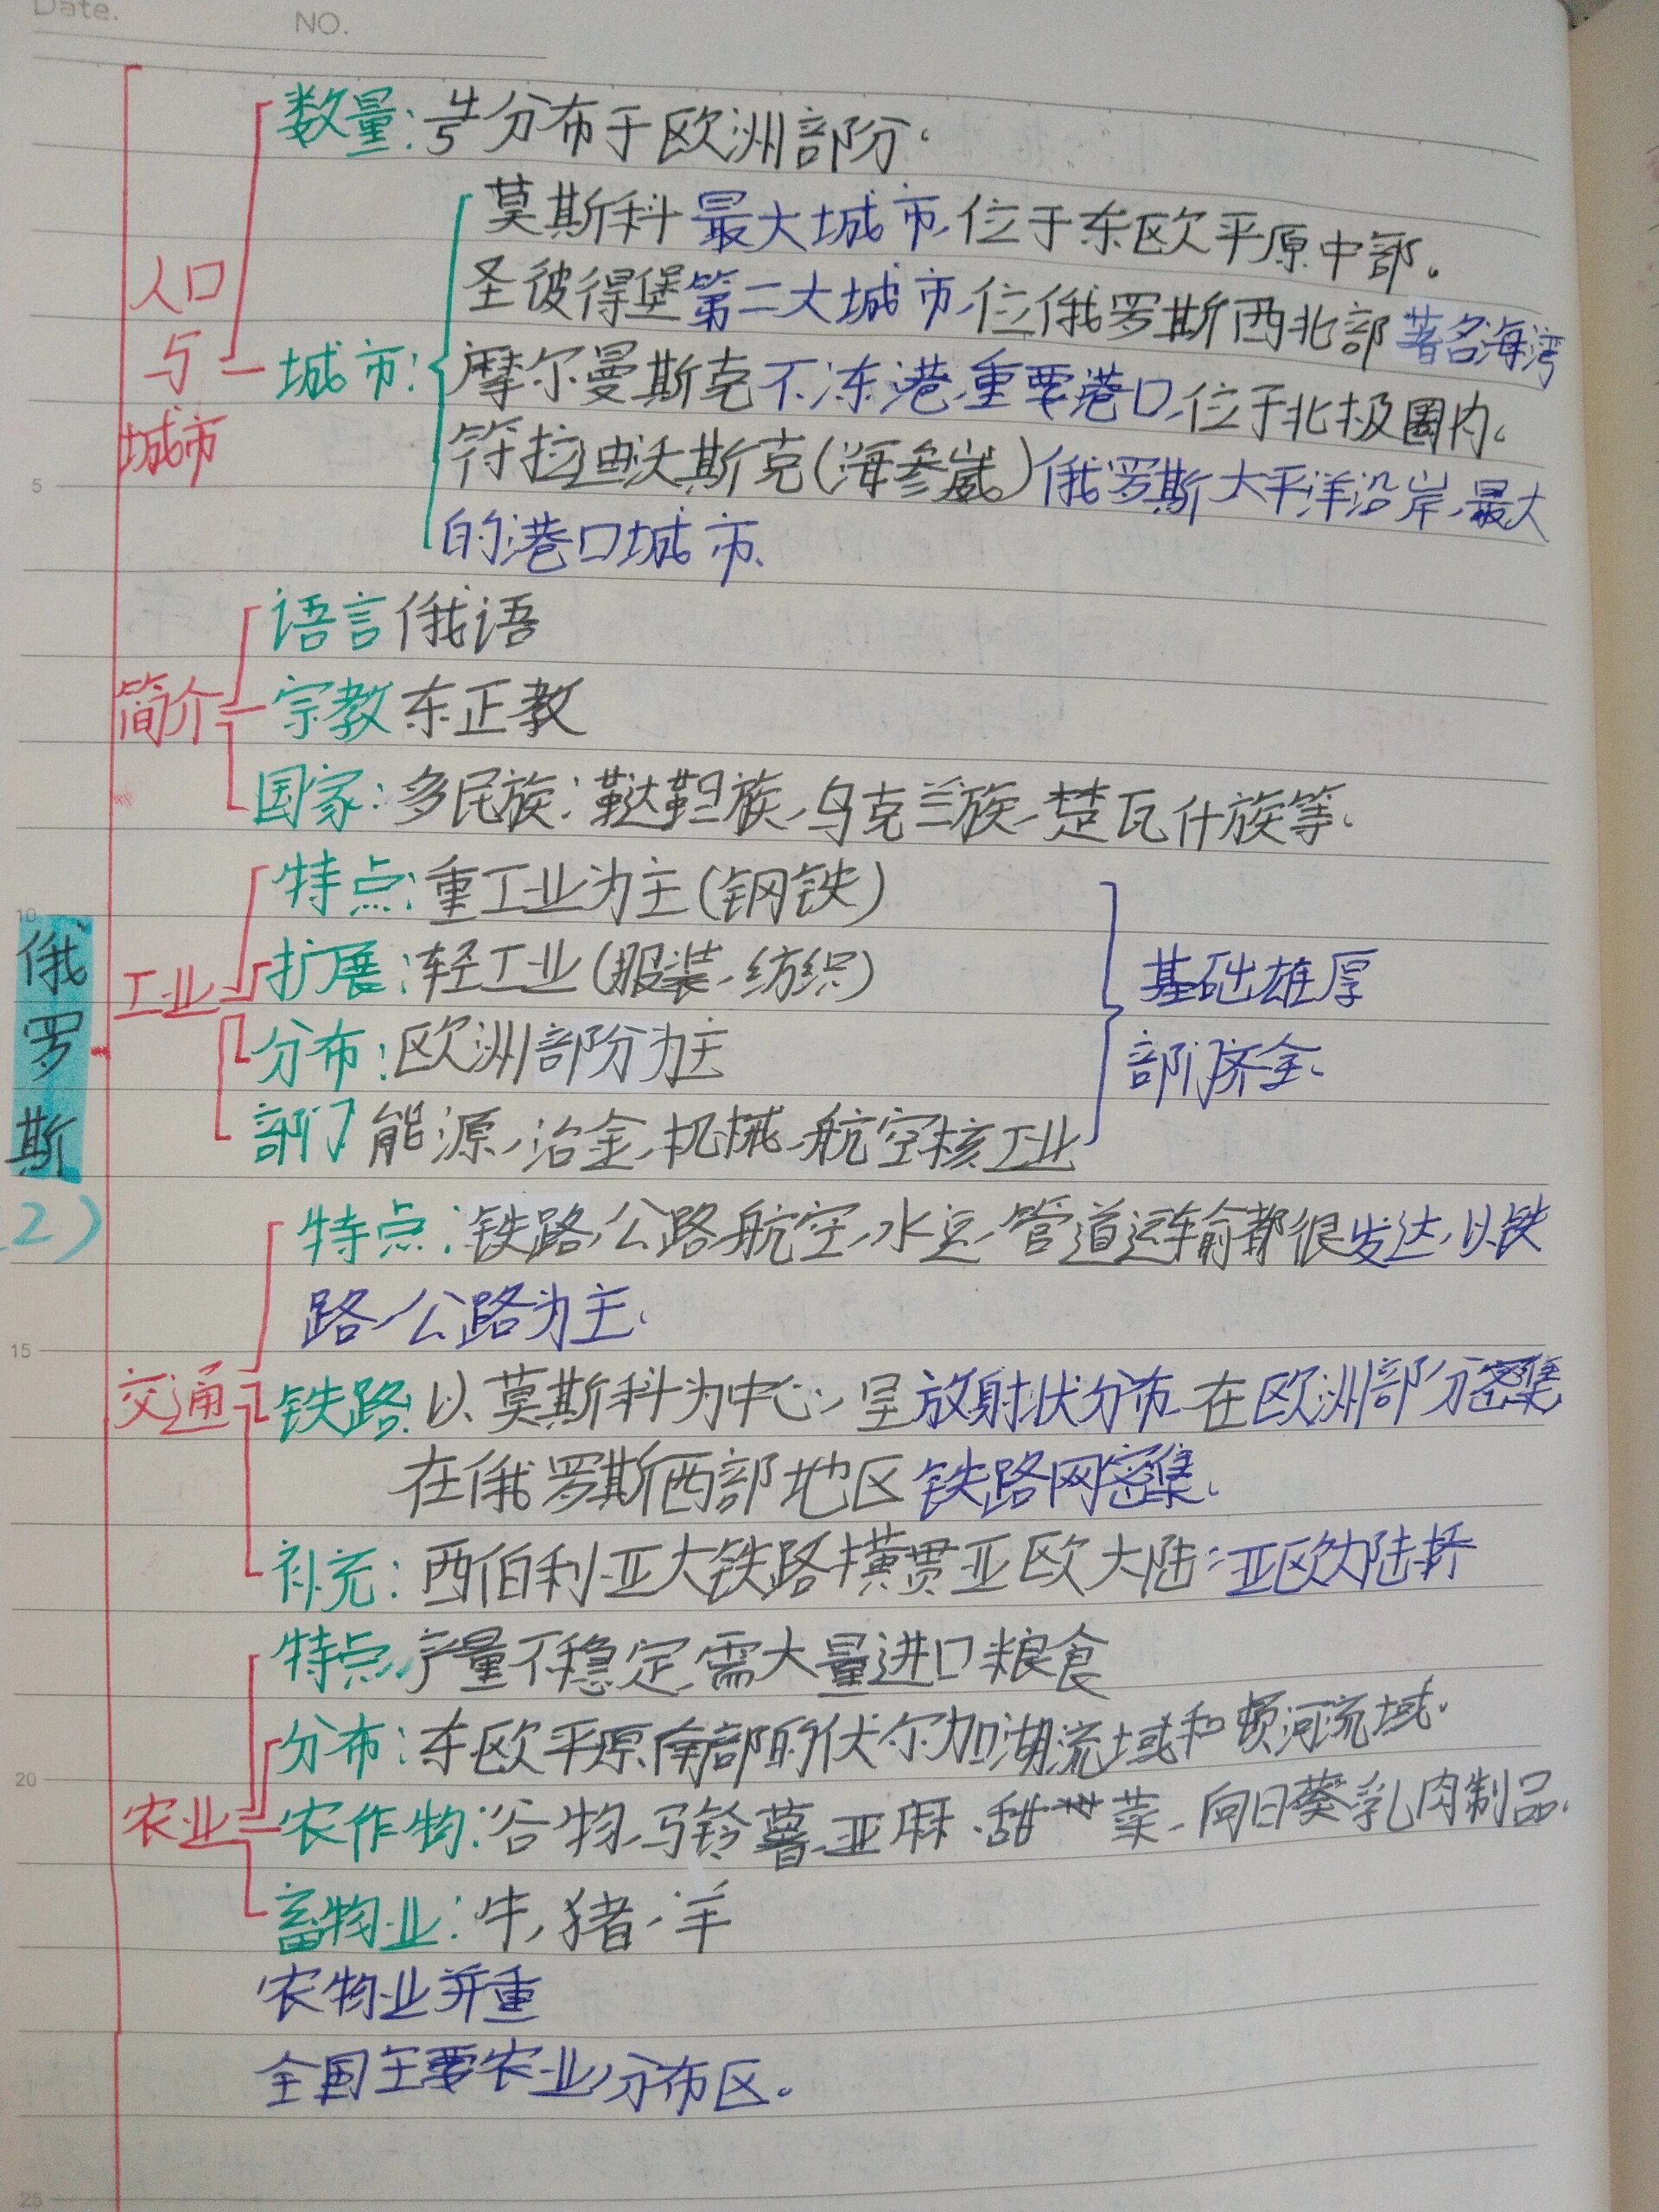 Date.
NO.
数量:4/5分布于欧洲部分.
莫斯科最大城市,位于东欧平原中部。
圣彼得堡第二大城市,位俄罗斯西北部著名海湾
人口与城市
城市:摩尔曼斯克不冻港,重要港口,位于北极圈内。
符拉迪沃斯克(海参崴)俄罗斯太平洋沿岸,最大
5
的港口城市、
语言俄语
简介
宗教东正教
国家:多民族:鞑靼族、乌克兰族、楚瓦什族等、
特点:重工业为主(钢铁)
10
俄罗斯
(2)
工业
扩展:轻工业(服装、纺织)
基础雄厚
分布:欧洲部分为主
部门齐全、
部门能源、冶金、机械、航空核工业
特点:铁路,公路航空,水运、管道运输都很发达,以铁
路、公路为主、
15
交通
铁路:以莫斯科为中心,呈放射状分布 在欧洲部分密集
在俄罗斯西部地区铁路网密集、
补充:西伯利亚大铁路横贯亚欧大陆:亚欧大陆桥
特点,产量不稳定,需大量进口粮食
分布:东欧平原南部的伏尔加湖流域和顿河流域.
20
农业
农作物:谷物,马铃薯,亚麻、甜菜、向日葵乳肉制品.
畜物业:牛,猪、羊
农物业并重
全国主要农业分布区。
25